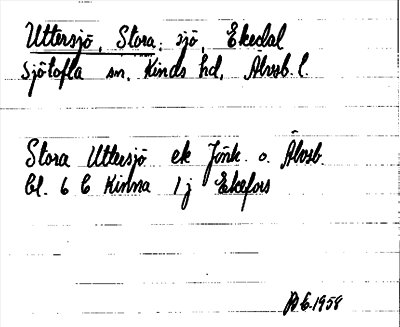 Uttersjö, Stora; sjö, Ekedal
Sjötofla sn, Kinds hd, Älvsb. l.
Stora Uttersjö ek Jönk. o. Älvsb.
bl. 6 C Kinna 1j Ekefors
1958